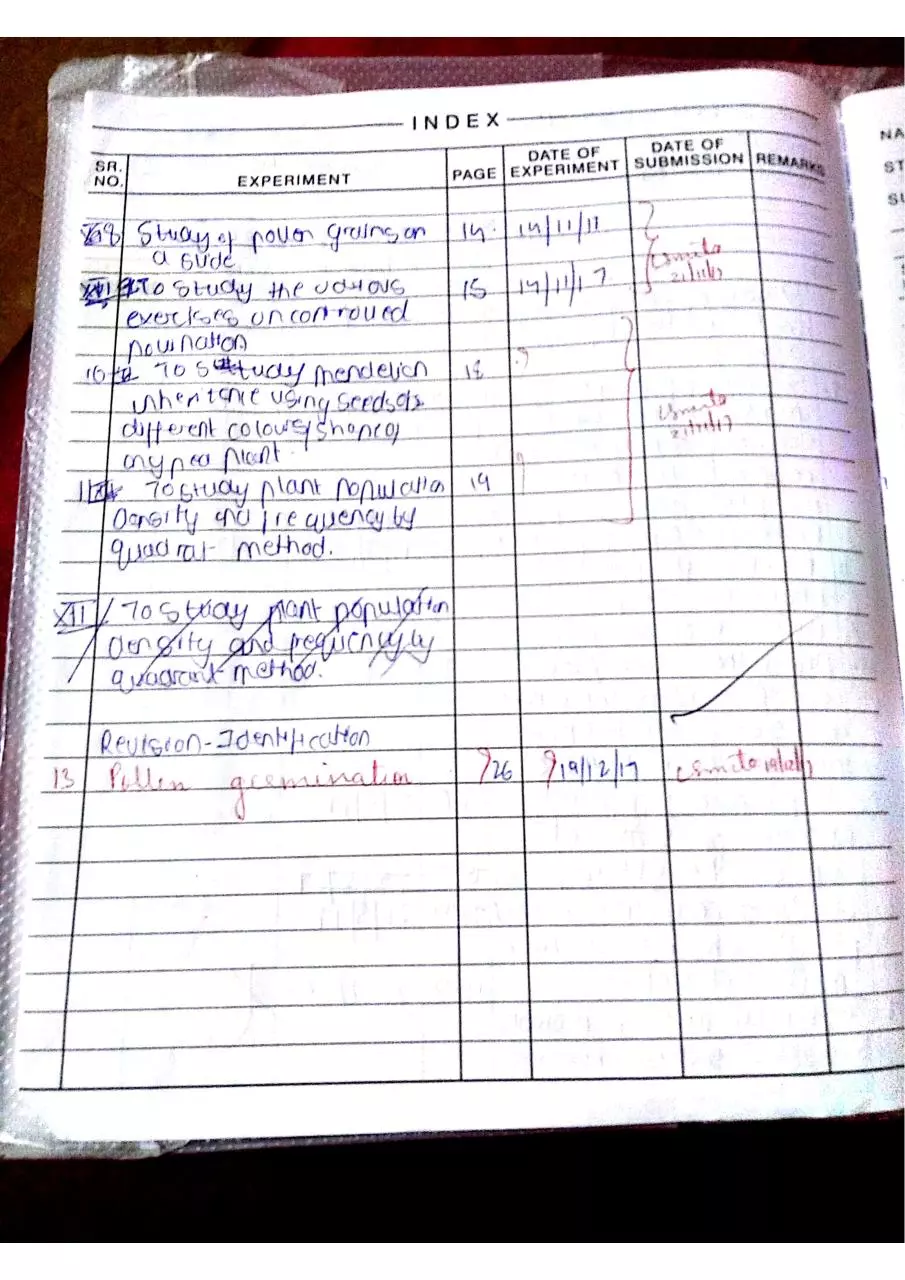 INDEX
SR. NO. EXPERIMENT PAGE DATE OF EXPERIMENT DATE OF SUBMISSION REMARKS
Study of pollen grains on 14 14/11/17
a slide.
To study the various 15 14/11/17 21/11/17
exercises on controlled
pollination
10 To study mendelian 18
inheritance using seeds of
different colour/shape of
any pea plant. 21/11/17
11 To study plant population 19
Density and frequency by
quadrat method.
XII To study plant population
density and frequency by
quadrant method.
Revision-Identification
13 Pollen germination 26 19/12/17 19/12/17
NA
ST
SU